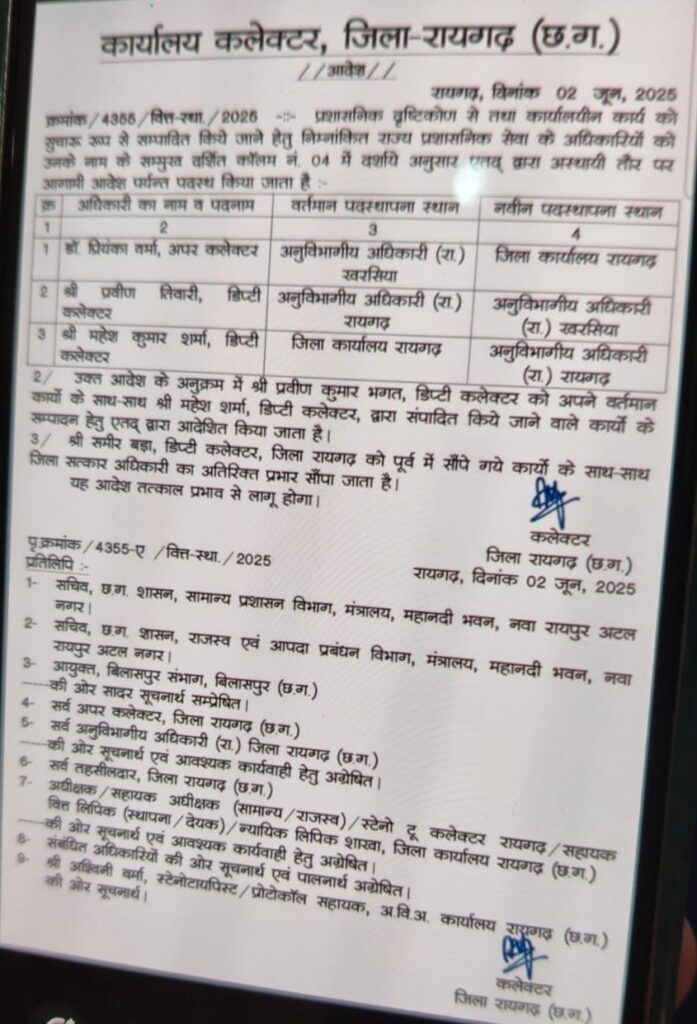 कार्यालय कलेक्टर, जिला-रायगढ़ (छ.ग.)
//आदेश//
रायगढ़, दिनांक 02 जून, 2025
क्रमांक/4355/वित्त-स्था./2025 -::- प्रशासनिक दृष्टिकोण से तथा कार्यालयीन कार्य को
सुचारू रूप से सम्पादित किये जाने हेतु निम्नांकित राज्य प्रशासनिक सेवा के अधिकारियों को
उनके नाम के सम्मुख दर्शित कॉलम नं. 04 में दर्शाये अनुसार एतद् द्वारा अस्थायी तौर पर
आगामी आदेश पर्यन्त पदस्थ किया जाता है :-
क्र अधिकारी का नाम व पदनाम वर्तमान पदस्थापना स्थान नवीन पदस्थापना स्थान
1 2 3 4
1 डॉ. प्रियंका वर्मा, अपर कलेक्टर अनुविभागीय अधिकारी (रा.) जिला कार्यालय रायगढ़
खरसिया
2 श्री प्रवीण तिवारी, डिप्टी अनुविभागीय अधिकारी (रा.) अनुविभागीय अधिकारी
कलेक्टर रायगढ़ (रा.) खरसिया
3 श्री महेश कुमार शर्मा, डिप्टी जिला कार्यालय रायगढ़ अनुविभागीय अधिकारी
कलेक्टर (रा.) रायगढ़
2/ उक्त आदेश के अनुक्रम में श्री प्रवीण कुमार भगत, डिप्टी कलेक्टर को अपने वर्तमान
कार्यो के साथ-साथ श्री महेश शर्मा, डिप्टी कलेक्टर, द्वारा संपादित किये जाने वाले कार्यो के
सम्पादन हेतु एतद् द्वारा आदेशित किया जाता है।
3/ श्री समीर बड़ा, डिप्टी कलेक्टर, जिला रायगढ़ को पूर्व में सौंपे गये कार्यो के साथ-साथ
जिला सत्कार अधिकारी का अतिरिक्त प्रभार सौंपा जाता है।
यह आदेश तत्काल प्रभाव से लागू होगा।
कलेक्टर
जिला रायगढ़ (छ.ग.)
पृ.क्रमांक/4355-ए /वित्त-स्था./2025
रायगढ़, दिनांक 02 जून, 2025
प्रतिलिपि :-
1- सचिव, छ.ग. शासन, सामान्य प्रशासन विभाग, मंत्रालय, महानदी भवन, नवा रायपुर अटल
नगर।
2- सचिव, छ.ग. शासन, राजस्व एवं आपदा प्रबंधन विभाग, मंत्रालय, महानदी भवन, नवा
रायपुर अटल नगर।
3- आयुक्त, बिलासपुर संभाग, बिलासपुर (छ.ग.)
-----की ओर सादर सूचनार्थ सम्प्रेषित।
4- सर्व अपर कलेक्टर, जिला रायगढ़ (छ.ग.)
5- सर्व अनुविभागीय अधिकारी (रा.) जिला रायगढ़ (छ.ग.)
-----की ओर सूचनार्थ एवं आवश्यक कार्यवाही हेतु अग्रेषित।
6- सर्व तहसीलदार, जिला रायगढ़ (छ.ग.)
7- अधीक्षक/सहायक अधीक्षक (सामान्य/राजस्व)/स्टेनो टू कलेक्टर रायगढ़/सहायक
वित्त लिपिक (स्थापना/देयक)/न्यायिक लिपिक शाखा, जिला कार्यालय रायगढ़ (छ.ग.)
-----की ओर सूचनार्थ एवं आवश्यक कार्यवाही हेतु अग्रेषित।
8- संबंधित अधिकारियों की ओर सूचनार्थ एवं पालनार्थ अग्रेषित।
9- श्री अश्विनी वर्मा, स्टेनोटायपिस्ट/प्रोटोकॉल सहायक, अ.वि.अ. कार्यालय रायगढ़ (छ.ग.)
की ओर सूचनार्थ।
कलेक्टर
जिला रायगढ़ (छ.ग.)